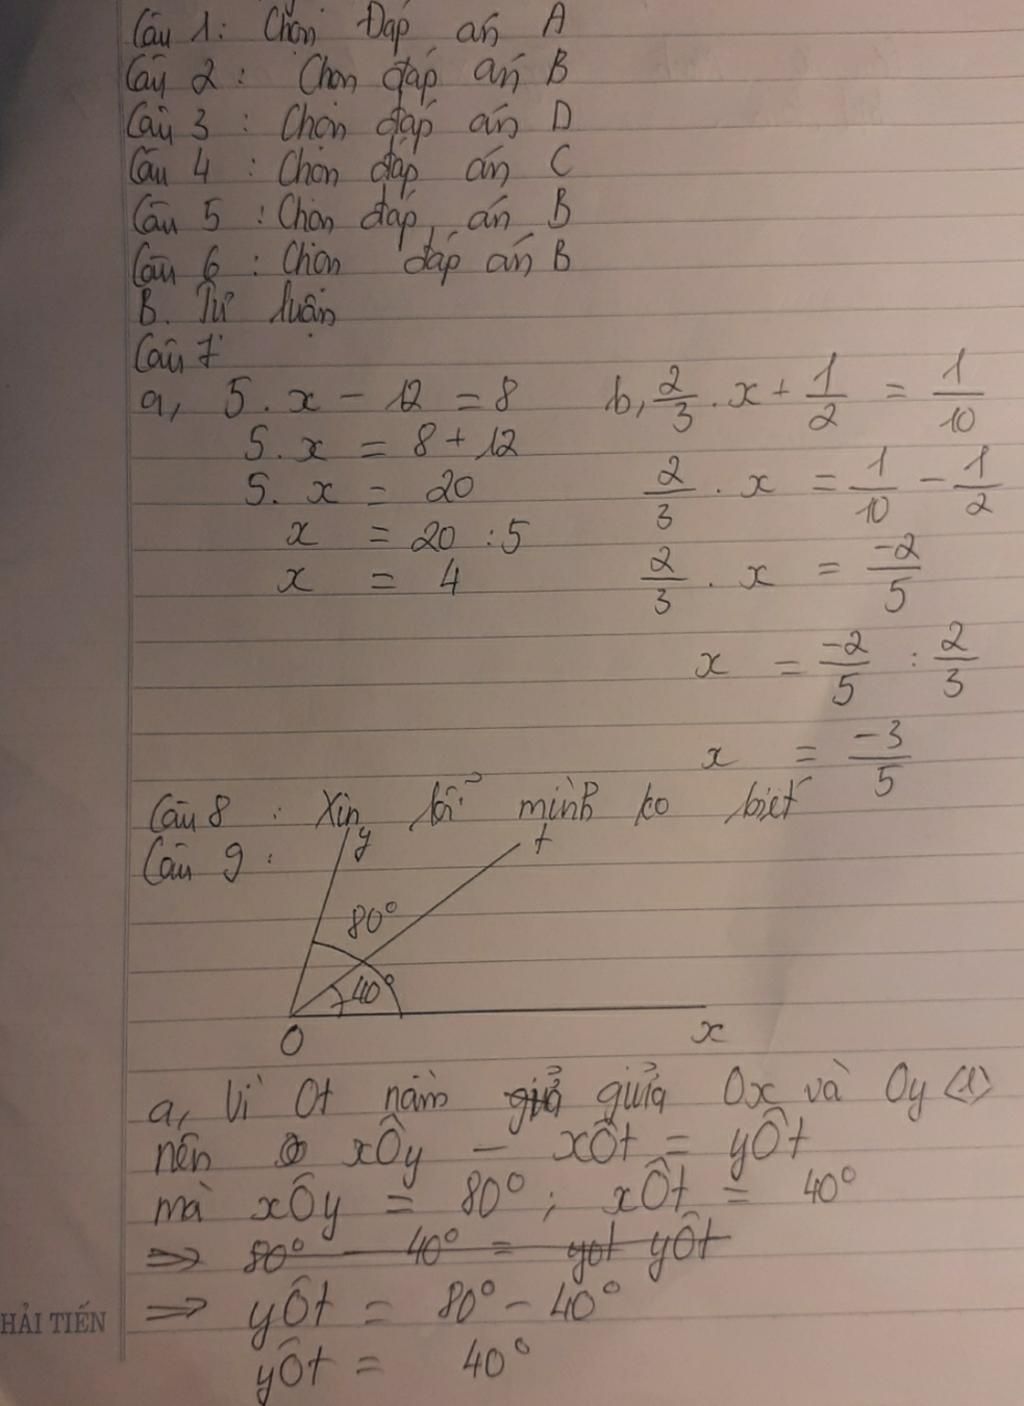 Câu 1: Chọn Đáp án A
Câu 2: Chọn đáp án B
Câu 3: Chọn đáp án D
Câu 4: Chọn đáp án C
Câu 5: Chọn đáp án B
Câu 6: Chọn đáp án B
B. Tự luận
Câu 7
a, 5.x - 12 = 8
5.x = 8 + 12
5.x = 20
x = 20 : 5
x = 4
b, 2/3 . x + 1/2 = 1/10
2/3 . x = 1/10 - 1/2
2/3 . x = -2/5
x = -2/5 : 2/3
x = -3/5
Câu 8: Xin lỗi mình ko biết
Câu 9:
y
t
80°
40°
O
x
a, Vì Ot nằm giữa Ox và Oy (1)
nên xÔy - xÔt = yÔt
mà xÔy = 80°; xÔt = 40°
=> 80° - 40° = yot yÔt
=> yÔt = 80° - 40°
yÔt = 40°
HẢI TIẾN